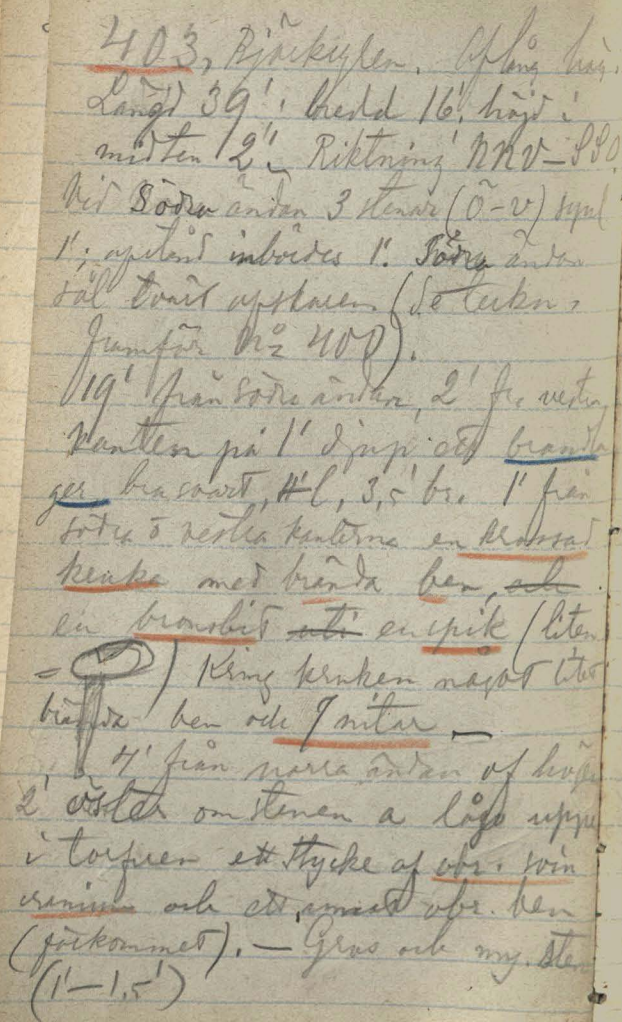 403. Björkgren. Aflång hög.
Längd 39'. bredd 16'. höjd i
midten 2'. Riktning NNV–SSO.
Vid Södra ändan 3 stenar (ö–v) synl
1'; afstånd inbördes 1'. Södra ändan
tvärt afskuren (Se teckn.
framför No 400).
19' från södra ändan, 2' fr. vestra
kanten på 1' djup ett brandla
ger bra svart, 4' l, 3,5' br. 1' från
södra o vestra kanterna en krossad
kruka med brända ben, och
en bronsbit uti en spik (liten
= ) Kring krukan något litet
brända ben och 9 nitar —
4' från norra ändan af högen
2' öster om stenen a låg uppe
i torfven ett stycke af obr. svin
cranium och ett annat obr. ben
(förkommet). — Grus och myc. sten
(1'–1,5')